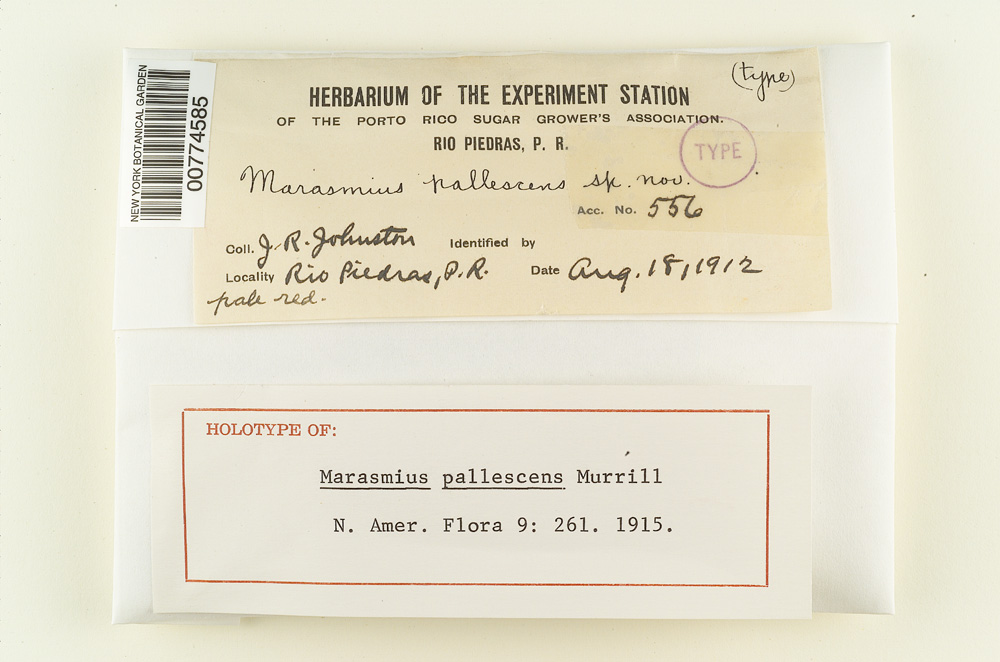 NEW YORK BOTANICAL GARDEN
00774585
(type)
HERBARIUM OF THE EXPERIMENT STATION
OF THE PORTO RICO SUGAR GROWER'S ASSOCIATION.
RIO PIEDRAS, P. R.
TYPE
Marasmius pallescens sp. nov.
Acc. No. 556
Coll. J. R. Johnston Identified by
Locality Rio Piedras, P.R. Date Aug. 18, 1912
pale red.
HOLOTYPE OF:
Marasmius pallescens Murrill
N. Amer. Flora 9: 261. 1915.